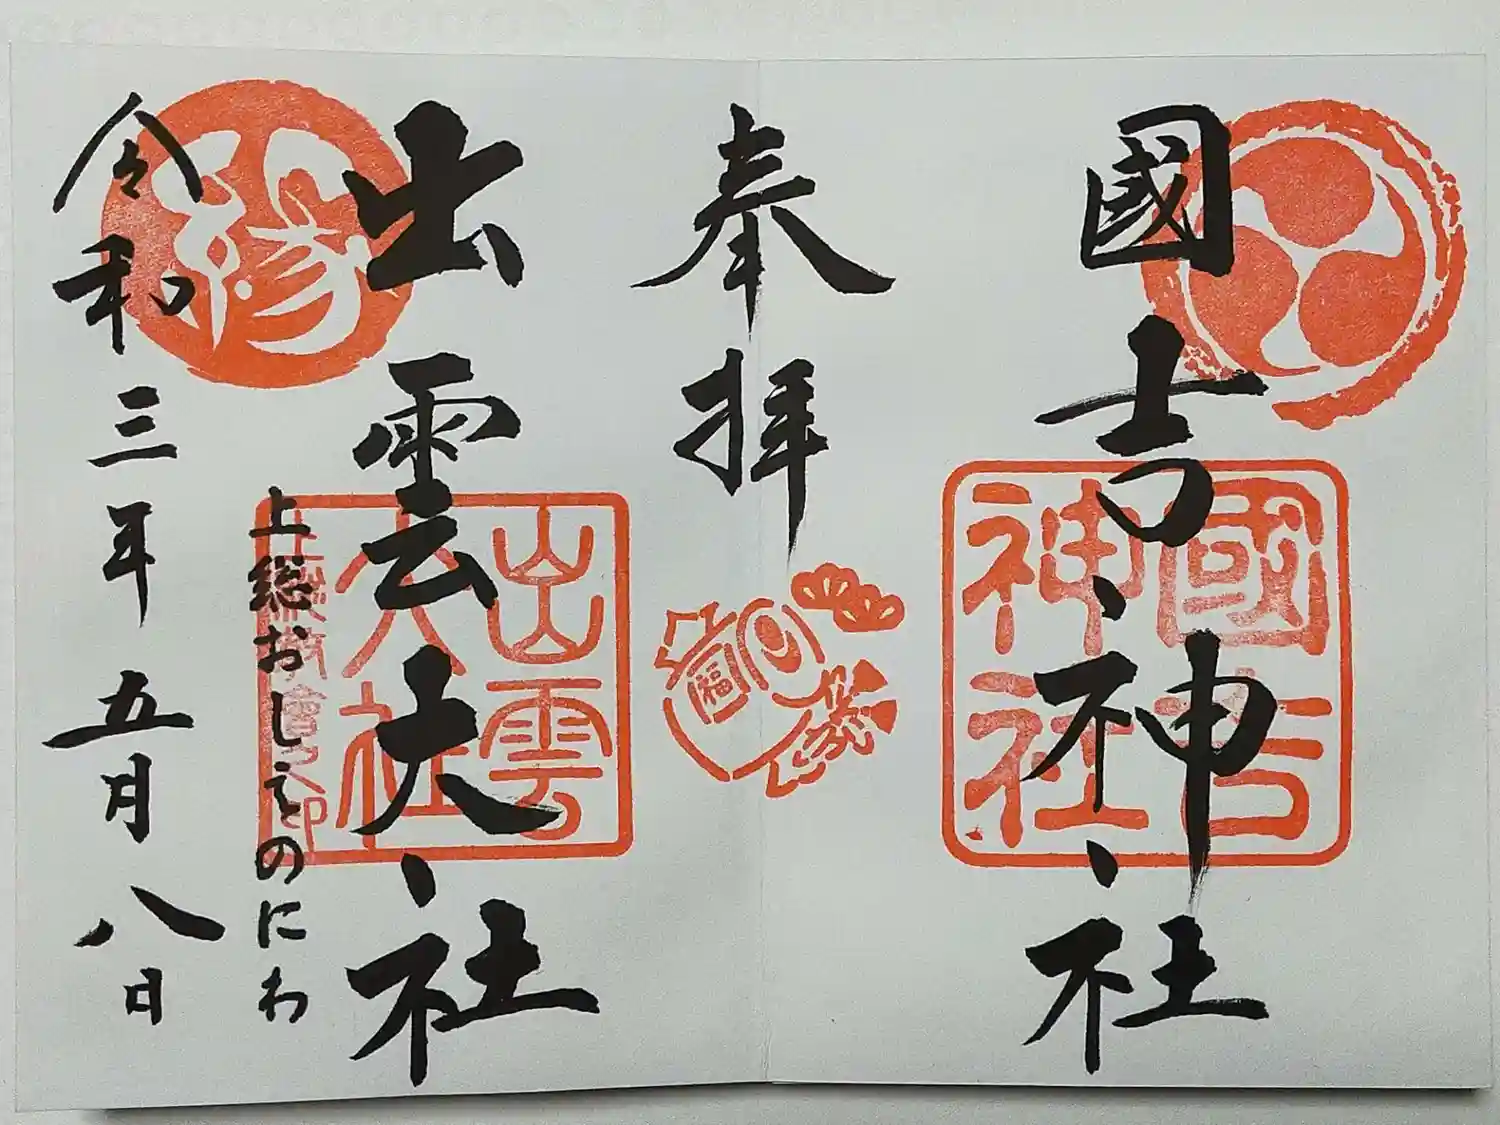 國吉神社
國吉
神社
奉拝
福
出雲大社
出雲
大社
上総教會之印
上総おしゑのにわ
縁
令和三年五月八日